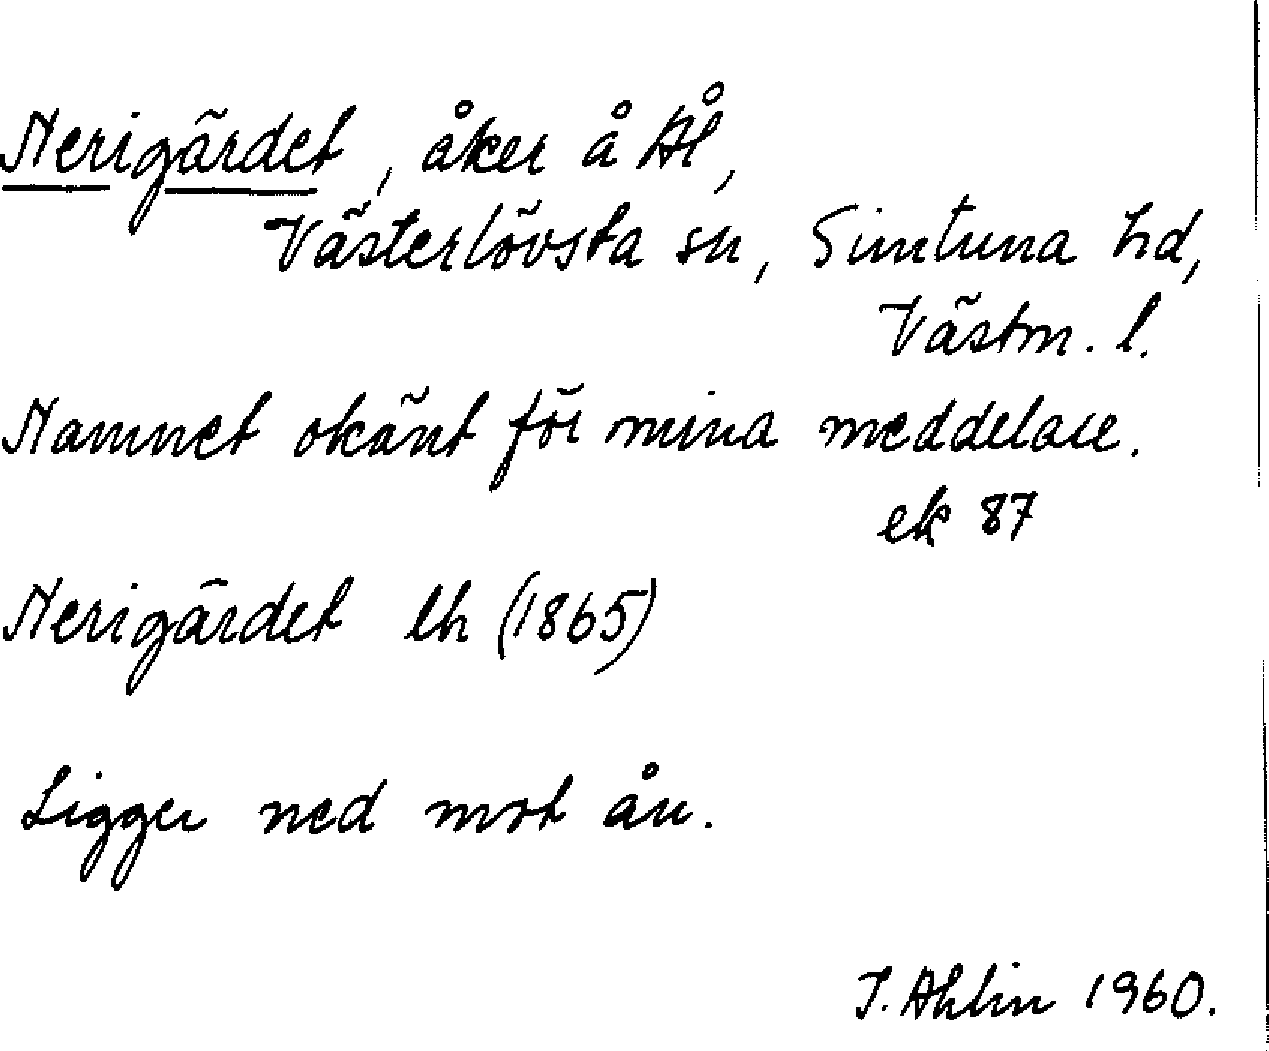 Nerigärdet, åker å Ål,
Västerlövsta sn, Simtuna hd,
Västm. l.
Namnet okänt för mina meddelare.
ek 87
Nerigärdet lh (1865)
Ligger ned mot ån.
I. Ahlin 1960.